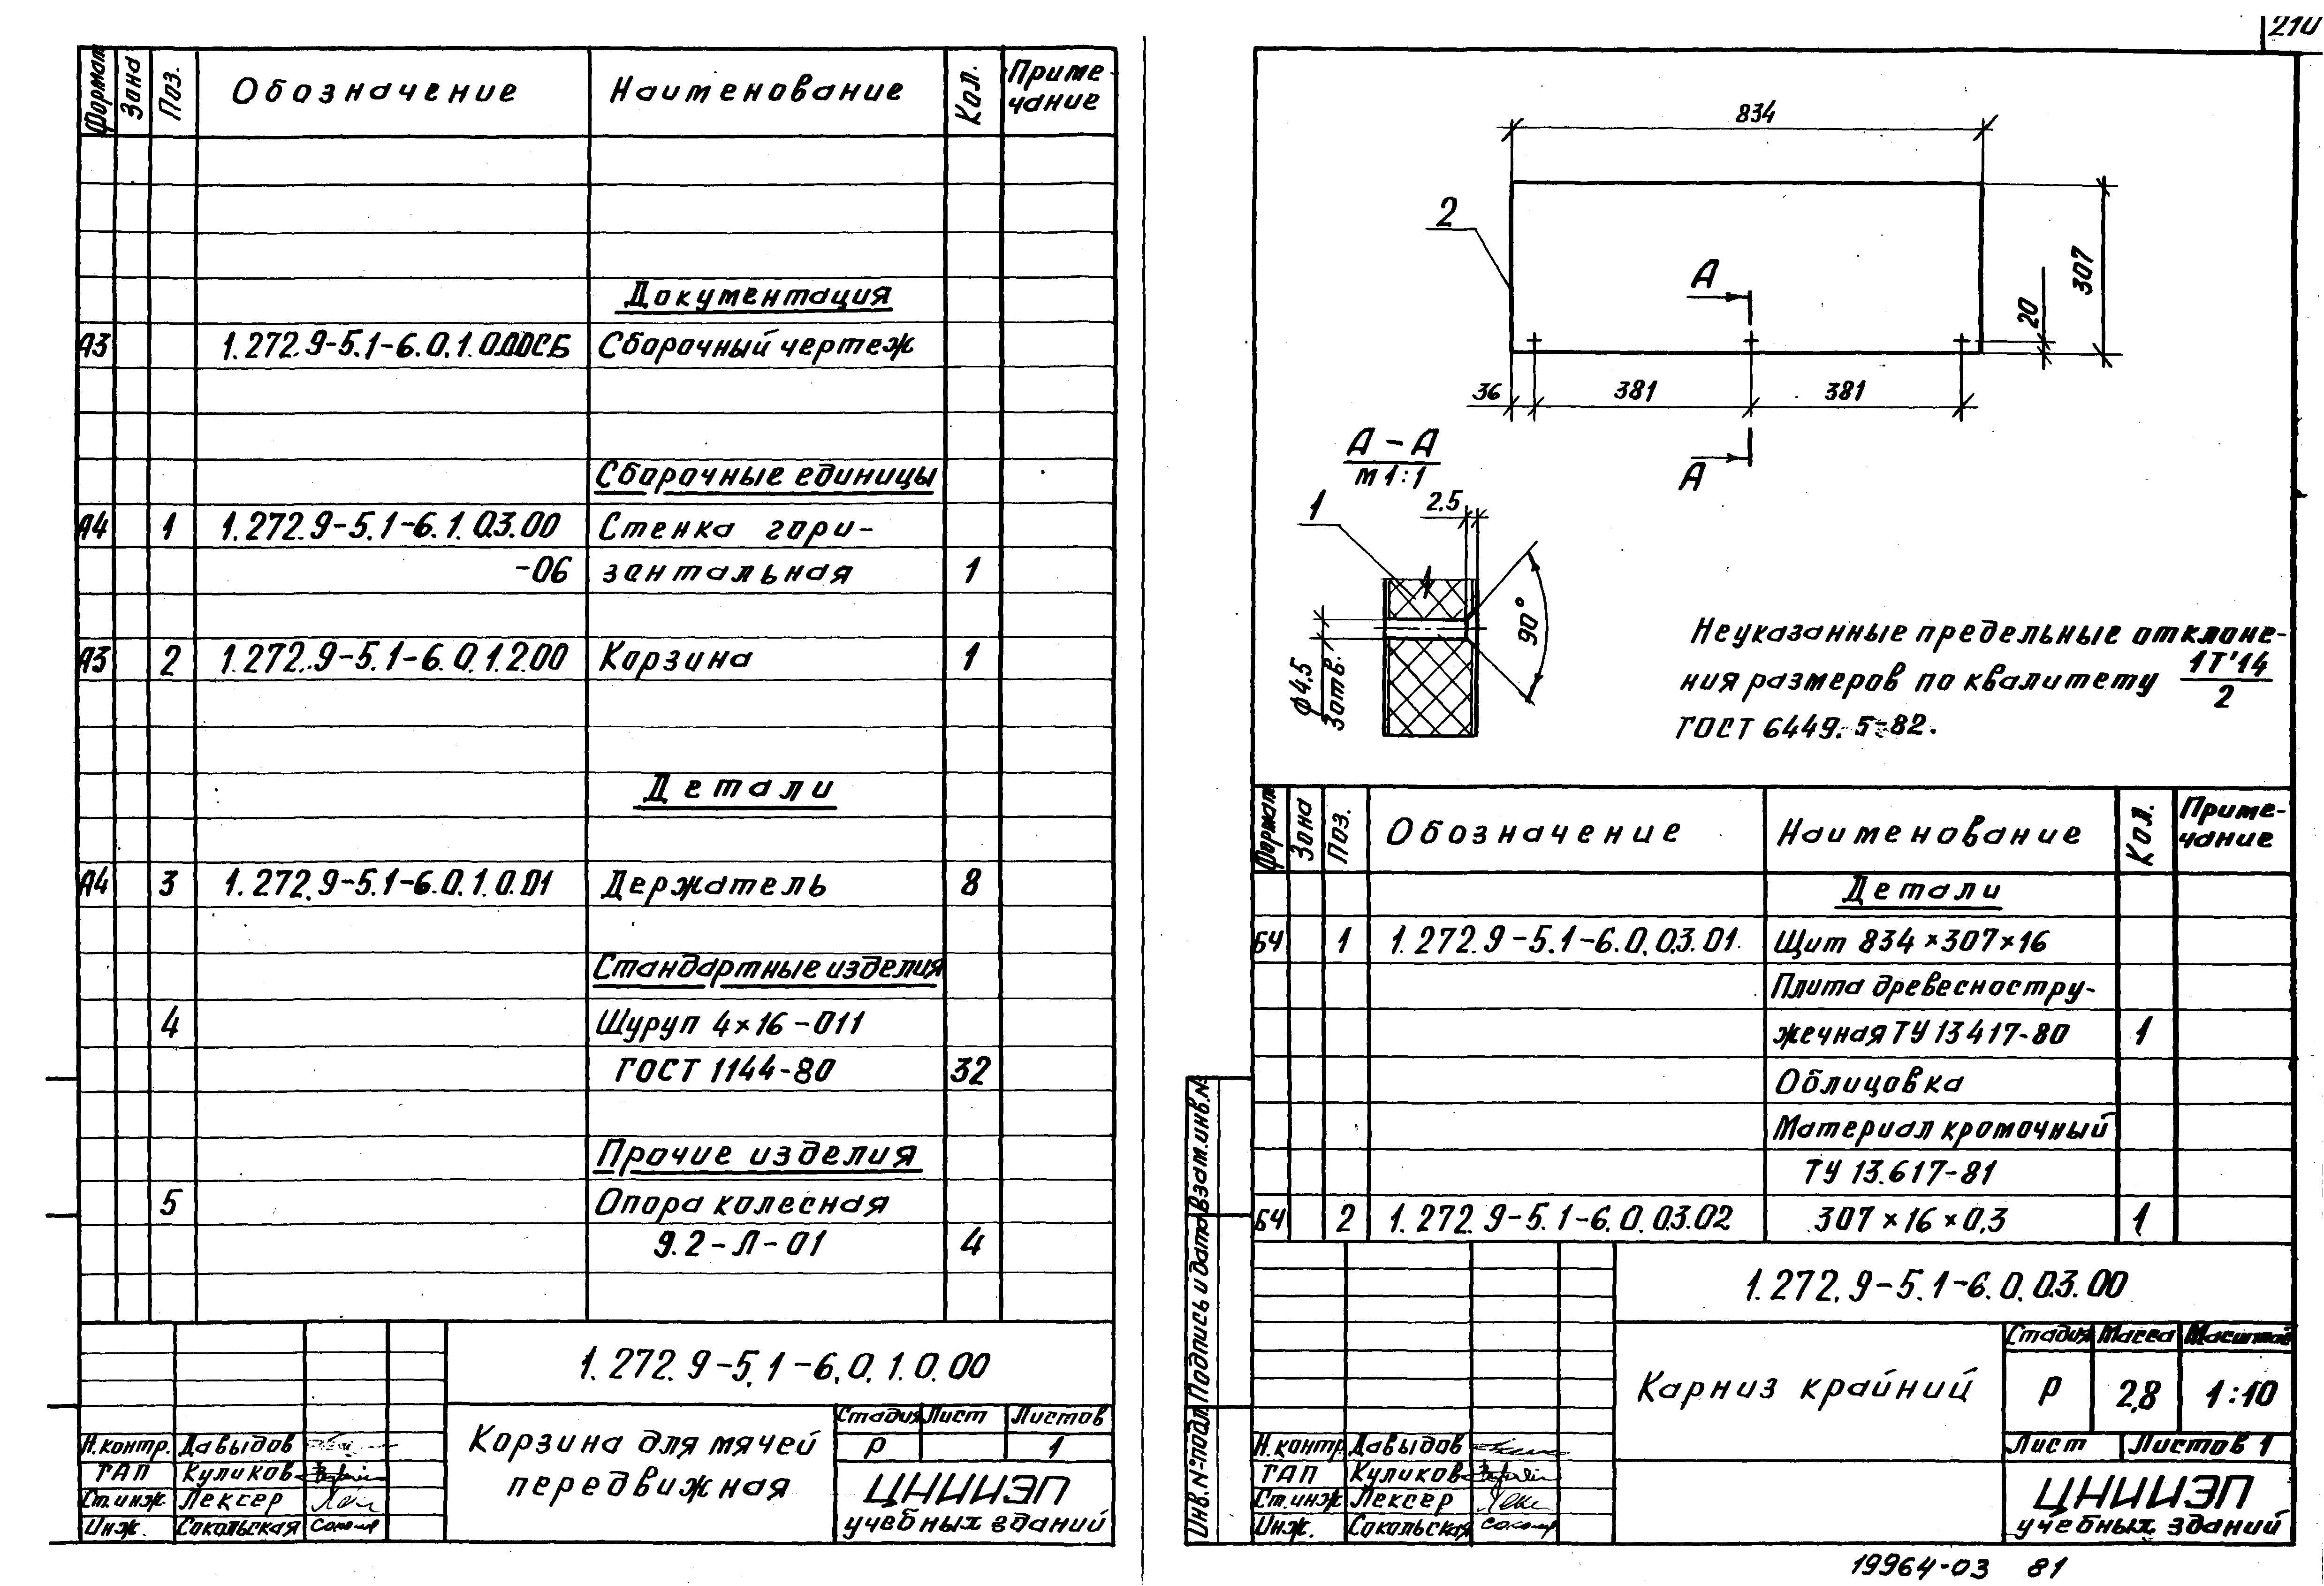 Формат Зона Поз. Обозначение Наименование Кол. Приме-
чание
Документация
А3 1.272.9-5.1-6.0.1.0.00СБ Сборочный чертеж
Сборочные единицы
А4 1 1.272.9-5.1-6.1.0.3.00 Стенка гори-
-06 зонтальная 1
А3 2 1.272.9-5.1-6.0.1.2.00 Корзина 1
Детали
А4 3 1.272.9-5.1-6.0.1.0.01 Держатель 8
Стандартные изделия
4 Шуруп 4×16-011
ГОСТ 1144-80 32
Прочие изделия
5 Опора колесная
9.2-Л-01 4
1.272.9-5.1-6.0.1.0.00
Корзина для мячей
передвижная
Стадия Лист Листов
Р 1
Н.контр. Давыдов
ГАП Куликов
Ст.инж. Лексер
Инж. Сокольская
ЦНИИЭП
учебных зданий
210
834
2
А
307
20
36 381 381
А
А-А
М 1:1
1
2,5
90°
ф4,5
3отв.
Неуказанные предельные отклоне-
ния размеров по квалитету 1Т'14
2
ГОСТ 6449.5-82.
Формат Зона Поз. Обозначение Наименование Кол. Приме-
чание
Детали
БЧ 1 1.272.9-5.1-6.0.0.3.01 Щит 834×307×16
Плита древесностру-
жечная ТУ 13417-80 1
Облицовка
Материал кромочный
ТУ 13.617-81
БЧ 2 1.272.9-5.1-6.0.0.3.02 307×16×0,3 1
Взам.инв.№
Подпись и дата
Инв.№подл.
1.272.9-5.1-6.0.0.3.00
Карниз крайний
Стадия Масса Масштаб
Р 2,8 1:10
Лист Листов 1
Н.контр. Давыдов
ГАП Куликов
Ст.инж Лексер
Инж. Сокольская
ЦНИИЭП
учебных зданий
19964-03 81